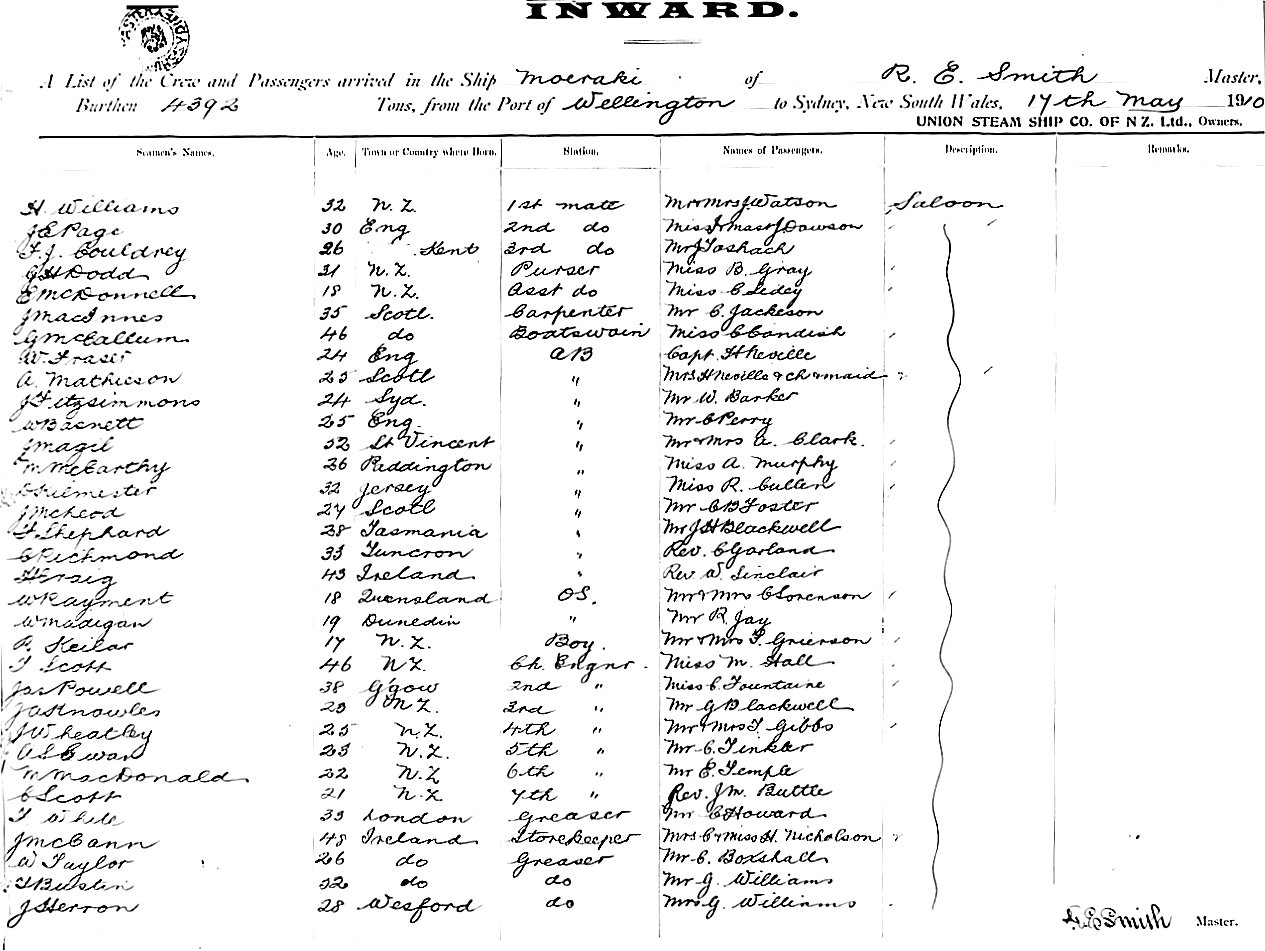 INWARD.
A List of the Crew and Passengers arrived in the Ship Moeraki of R. E. Smith Master,
Burthen 4392 Tons, from the Port of Wellington to Sydney, New South Wales, 17th May 1910
UNION STEAM SHIP CO. OF N Z. Ltd., Owners.
Seamen's Names. Age. Town or Country where Born. Station. Names of Passengers. Description. Remarks.
H. Williams 32 N. Z. 1st mate Mr & Mrs J Watson Saloon
J E Page 30 Eng 2nd do Miss I & Mast J Dawson
F. J. Couldrey 26 Kent 3rd do Mr J Tashach
J H Dodd 31 N. Z. Purser Miss B. Gray
E McDonnell 18 N. Z. Asst do Miss C Ledey
J MacInnes 35 Scotl. Carpenter Mr C. Jackeson
G McCallum 46 do Boatswain Miss C Candish
W. Fraser 24 Eng AB Capt. H Neville
A. Mathieson 25 Scotl " Mrs H Neville & ch & maid
J Fitzsimmons 24 Syd. " Mr W. Barker
W Basnett 25 Eng. " Mr C Perry
J Magil 32 St Vincent " Mr & Mrs A. Clark.
M McCarthy 26 Paddington " Miss A. Murphy
C Kilmester 32 Jersey " Miss R. Cullen
J McLeod 27 Scotl " Mr C B Foster
F Shephard 38 Tasmania " Mr J H Blackwell
C Richmond 33 " Rev. C Garland
43 Ireland " Rev. W. Sinclair
W Rayment 18 Queensland OS. Mr & Mrs C Sorenson
W Madigan 19 Dunedin " Mr R. Jay
P. Keilar 17 N. Z. Boy. Mr & Mrs F. Grierson
F Scott 46 N Z. Ch. Engnr. Miss M. Hall
Jas Powell 38 G'gow 2nd " Miss C. Fountaine
J A Knowles 23 N Z. 3rd " Mr G Blackwell
J Wheatley 25 N. Z. 4th " Mr & Mrs T. Gibbs
A S Ewan 23 N. Z. 5th " Mr C. Tinkler
M MacDonald 22 N. Z 6th " Mr E. Temple
C Scott 21 N. Z. 7th " Rev. J M. Buttle
F White 33 London Greaser Mr C Howard
J McCann 48 Ireland Storekeeper Mrs C & Miss H. Nicholson
W Taylor 26 do Greaser Mr C. Boxshall
T Bustin 32 do do Mr G. Williams
J Herron 28 Wesford do Mrs G. Williams
R E Smith Master.